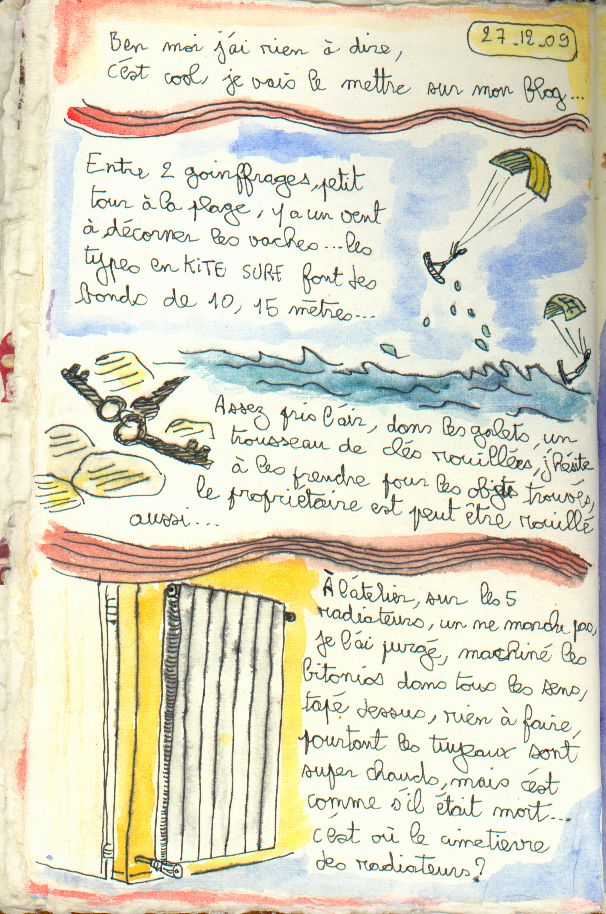 27_12_09
Ben moi j'ai rien à dire,
c'est cool, je vais le mettre sur mon blog...
Entre 2 goinffrages, petit
tour à la plage, y a un vent
à décorner les vaches... les
types en KITE SURF font des
bonds de 10, 15 mètres...
Assez pris l'air, dans les galets, un
trousseau de clés rouillées, j'hésite
à les prendre pour les objets trouvés,
le propriétaire est peut être rouillé
aussi...
À l'atelier, sur les 5
radiateurs, un ne marche pas,
je l'ai purgé, machiné les
bitonios dans tous les sens,
tapé dessus, rien à faire,
pourtant les tuyeaux sont
super chauds, mais c'est
comme s'il était mort...
c'est où le cimetierre
des radiateurs?